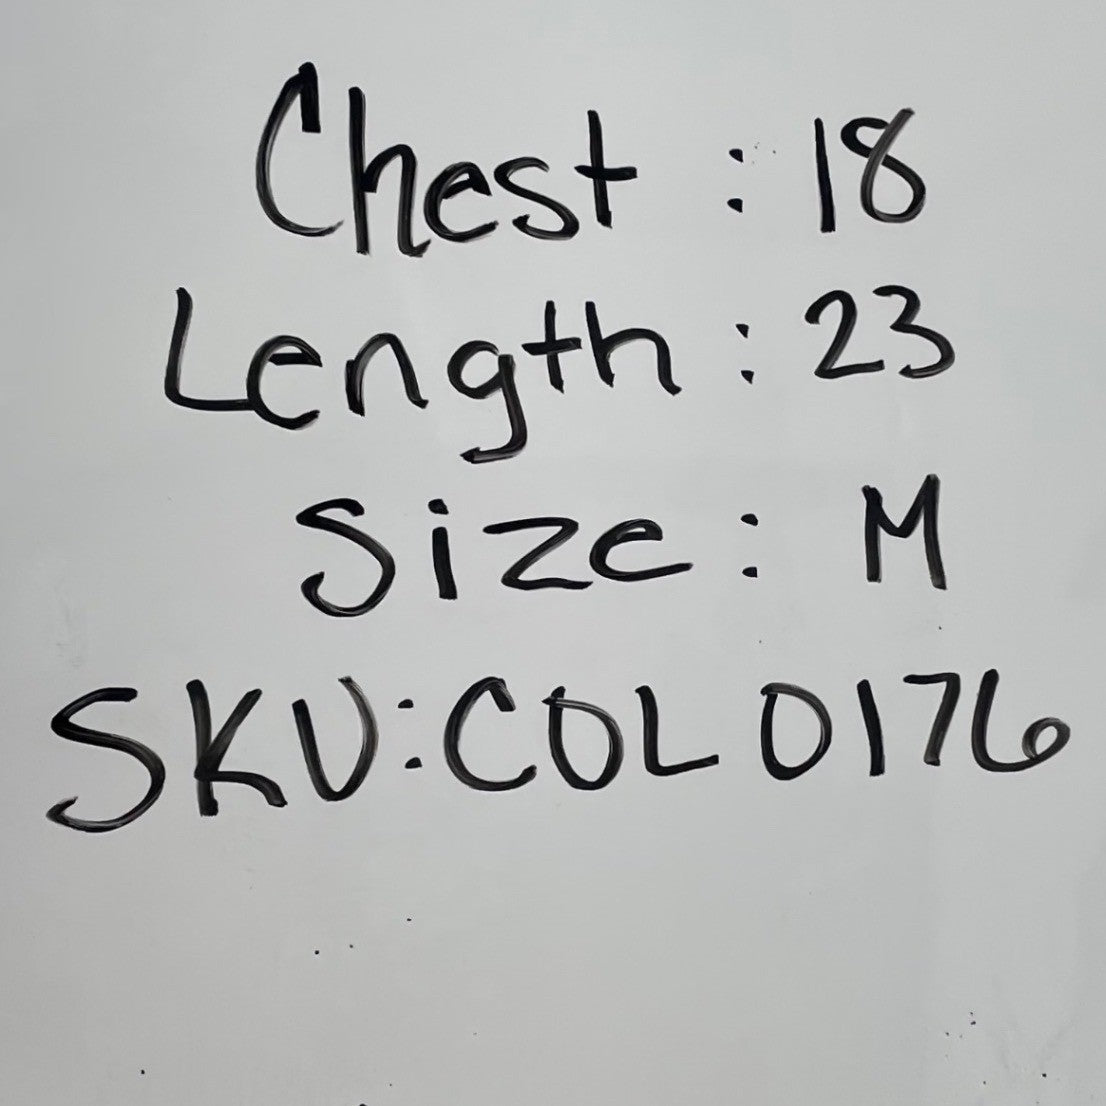 Chest : 18
Length : 23
Size : M
SKU:COL 0176